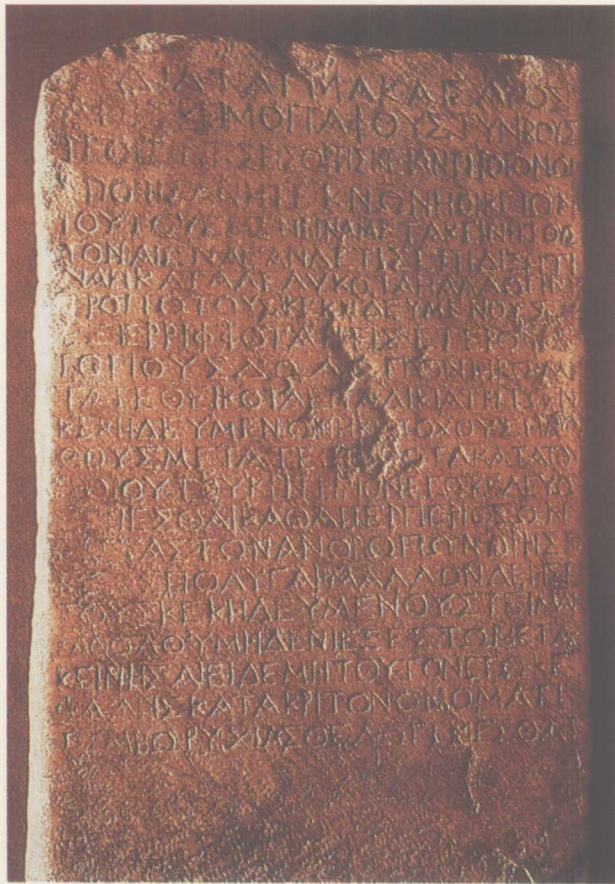 ΔΙΑΤΑΓΜΑΚΑΙΣΑΡΟΣ
ΜΟΙΤΑΦΟΥΣΤΥΝΒΟΥΣ
ΤΕΟΙΤΙΝΕΣΕΙΣΘΡΗΣΚΕΙΑΝΠΡΟΓΟΝΩΝ
ΕΠΟΙΗΣΑΝΗΤΕΚΝΩΝΗΟΙΚΕΙΩΝ
ΤΟΥΤΟΥΣΜΕΝΕΙΝΑΜΕΤΑΚΕΙΝΗΤΟΥΣ
ΤΟΝΑΙΩΝΑΕΑΝΔΕΤΙΣΕΠΙΔΙΞΗΤΙ
ΝΑΗΚΑΤΑΛΕΛΥΚΟΤΑΗΑΛΛΩΤΙΝΙ
ΤΡΟΠΩΤΟΥΣΚΕΚΗΔΕΥΜΕΝΟΥΣ
ΕΞΕΡΡΙΦΦΟΤΑΗΕΙΣΕΤΕΡΟΥΣ
ΤΟΠΟΥΣΔΩΛΩΠΟΝΗΡΩΜΕ
ΤΑΤΕΘΕΙΚΟΤΑΕΠΑΔΙΚΙΑΤΗΤΩΝ
ΚΕΚΗΔΕΥΜΕΝΩΝΗΚΑΤΟΧΟΥΣΗΛΙ
ΘΟΥΣΜΕΤΑΤΕΘΕΙΚΟΤΑΚΑΤΑΤΟΥ
ΤΟΙΟΥΤΟΥΚΡΙΤΗΡΙΟΝΕΓΩΚΕΛΕΥΩ
ΓΕΝΕΣΘΑΙΚΑΘΑΠΕΡΠΕΡΙΘΕΩΝ
ΕΙΣΤΑΣΤΩΝΑΝΘΡΩΠΩΝΘΡΗΣ
ΠΟΛΥΓΑΡΜΑΛΛΟΝΔΕΗΣΕΙ
ΤΟΥΣΚΕΚΗΔΕΥΜΕΝΟΥΣΤΕΙΜΑΝ
ΚΑΘΟΛΟΥΜΗΔΕΝΙΕΞΕΣΤΩΜΕΤΑ
ΚΕΙΝΗΣΑΙΕΙΔΕΜΗΤΟΥΤΟΝΕΓΩΚΕ
ΦΑΛΗΣΚΑΤΑΚΡΙΤΟΝΟΝΟΜΑΤΙ
ΤΥΜΒΩΡΥΧΙΑΣΘΕΛΩΓΕΝΕΣΘΑΙ